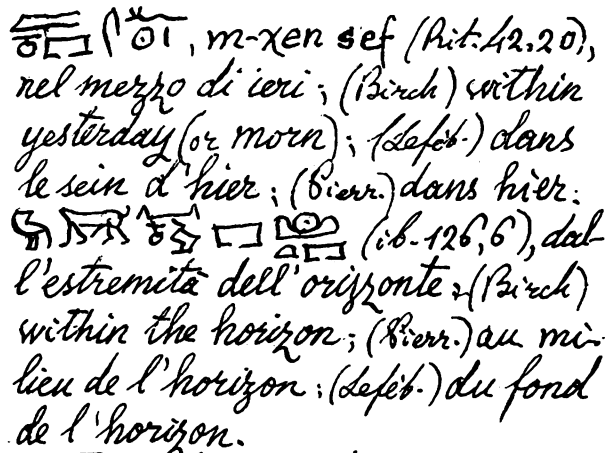 , m-χen sef (Rit. 42, 20),
nel mezzo di ieri; (Birch) within
yesterday (or morn); (Leféb.) dans
le sein d'hier; (Pierr.) dans hier.
(ib. 126, 6), dal-
l'estremità dell'orizzonte; (Birch)
within the horizon; (Pierr.) au mi-
lieu de l'horizon; (Leféb.) du fond
de l'horizon.